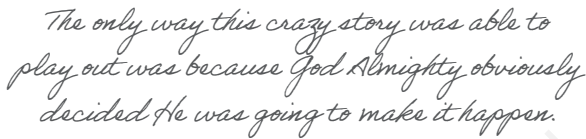 The only way this crazy story was able to
play out was because God Almighty obviously
decided He was going to make it happen.